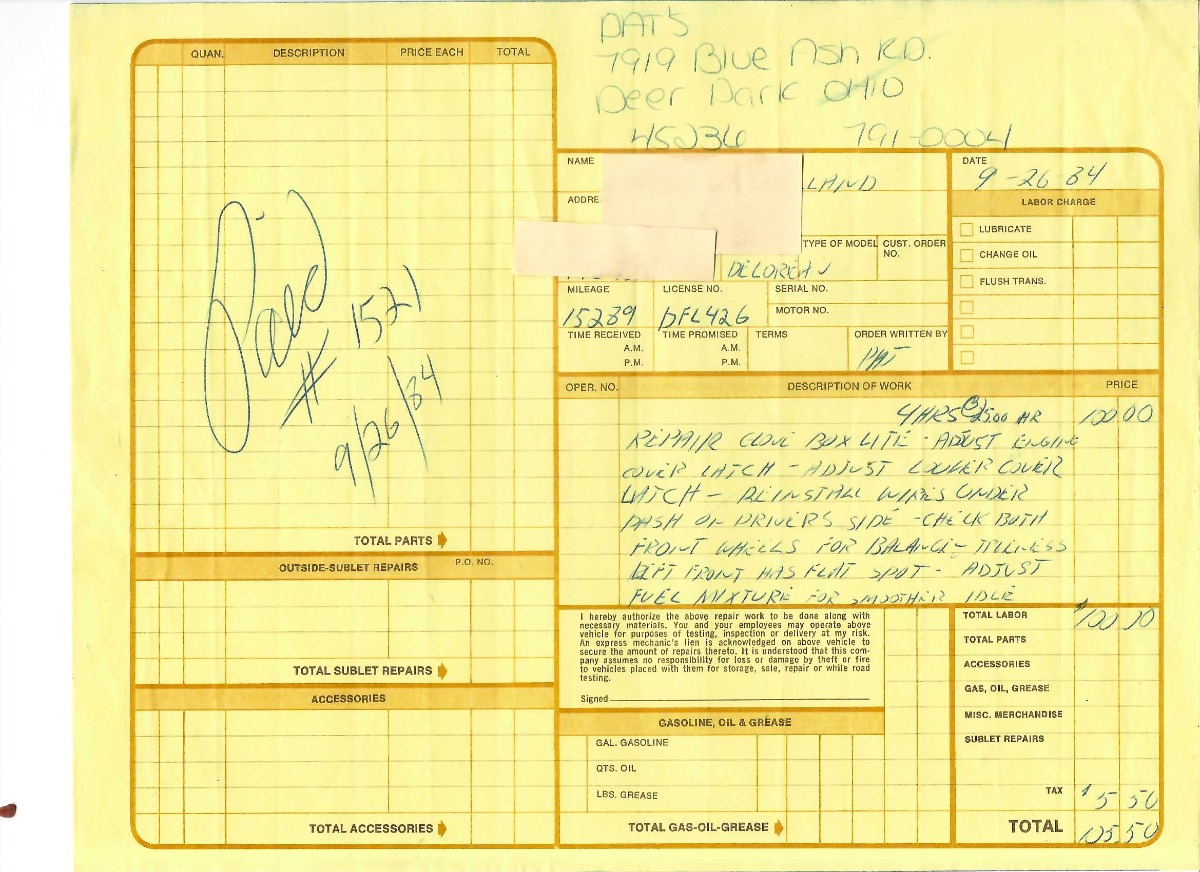 PAT'S
7919 Blue Ash RD.
Deer Park OHIO
45236 791-0004
QUAN. DESCRIPTION PRICE EACH TOTAL
NAME LAND
DATE 9-26-84
ADDRE
LABOR CHARGE
LUBRICATE
CHANGE OIL
FLUSH TRANS.
TYPE OF MODEL CUST. ORDER NO.
DELOREAN
MILEAGE LICENSE NO. SERIAL NO.
15289 DFL426 MOTOR NO.
TIME RECEIVED TIME PROMISED TERMS ORDER WRITTEN BY
A.M. A.M. PAT
P.M. P.M.
Paid
# 1521
9/26/84
OPER. NO. DESCRIPTION OF WORK PRICE
4 HRS @ 25.00 HR 100 00
REPAIR GLOVE BOX LITE - ADJUST ENGINE
COVER LATCH - ADJUST LOUVER COVER
LATCH - REINSTALL WIRES UNDER
DASH ON DRIVERS SIDE - CHECK BOTH
FRONT WHEELS FOR BALANCE - TRUENESS
LEFT FRONT HAS FLAT SPOT - ADJUST
FUEL MIXTURE FOR SMOOTHER IDLE
TOTAL PARTS
OUTSIDE-SUBLET REPAIRS P.O. NO.
TOTAL SUBLET REPAIRS
ACCESSORIES
TOTAL ACCESSORIES
I hereby authorize the above repair work to be done along with
necessary materials. You and your employees may operate above
vehicle for purposes of testing, inspection or delivery at my risk.
An express mechanic's lien is acknowledged on above vehicle to
secure the amount of repairs thereto. It is understood that this com-
pany assumes no responsibility for loss or damage by theft or fire
to vehicles placed with them for storage, sale, repair or while road
testing.
Signed
GASOLINE, OIL & GREASE
GAL. GASOLINE
QTS. OIL
LBS. GREASE
TOTAL GAS-OIL-GREASE
TOTAL LABOR $100.00
TOTAL PARTS
ACCESSORIES
GAS, OIL, GREASE
MISC. MERCHANDISE
SUBLET REPAIRS
TAX $5 50
TOTAL 105.50